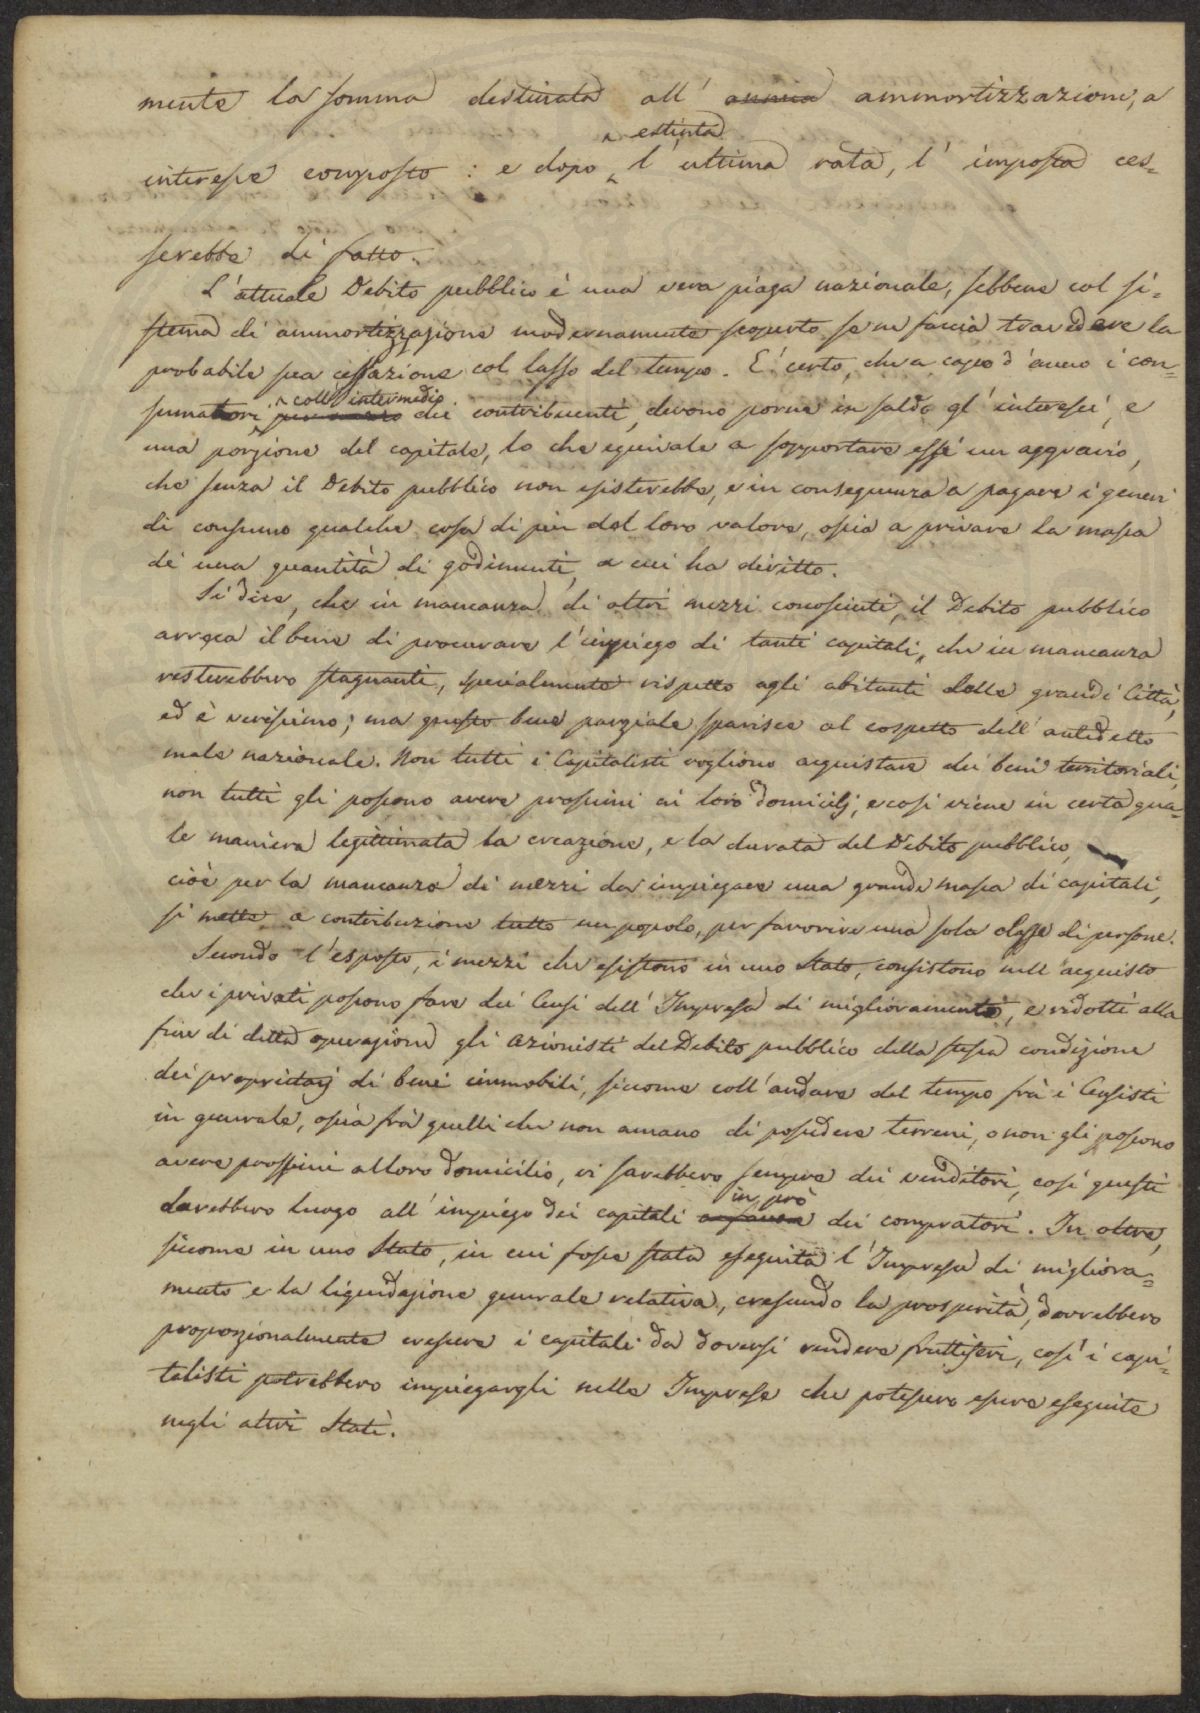 mente la somma destinata all' annua ammortizzazione, a
estinta
interesse composto : e dopo l' ultima rata, l' imposta ces=
serebbe di fatto.
L'attuale Debito pubblico è una vera piaga nazionale, sebbene col si=
stema di ammortizzazione modernamente scoperto se ne faccia travedere la
probabile sua cessazione col lasso del tempo. E' certo, che a capo d'anno i con=
coll' intermedio
sumatori, dei contribuenti, devono porre in saldo gl' interessi, e
una porzione del capitale, lo che equivale a sopportare essi un aggravio,
che senza il Debito pubblico non esisterebbe, e in conseguenza a pagare i generi
di consumo qualche cosa di più del loro valore, ossia a privare la massa
di una quantità di godimenti, a cui ha diritto.
Si dice, che in mancanza di altri mezzi conosciuti, il Debito pubblico
arreca il bene di procurare l'impiego di tanti capitali, che in mancanza
resterebbero stagnanti, specialmente rispetto agli abitanti delle grandi Città,
ed è verissimo; ma questo bene parziale sparisce al cospetto dell' antidetto
male nazionale. Non tutti i Capitalisti vogliono acquistare dei beni territoriali,
non tutti gli possono avere prossimi ai loro domicilj, e così viene in certa qua=
le maniera legittimata la creazione, e la durata del Debito pubblico,
cioè per la mancanza di mezzi da impiegare una grande massa di capitali,
si mette a contribuzione tutto un popolo, per favorire una sola classe di persone.
Secondo l'esposto, i mezzi che esistono in uno Stato, consistono nell' acquisto
che i privati possono fare dei Censi dell' Impresa di miglioramento, e ridotti alla
fine di detta operazione gli azionisti del Debito pubblico della stessa condizione
dei proprietarj di beni immobili, siccome coll'andare del tempo frà i Censisti
in generale, ossia frà quelli che non amano di possedere terreni, o non gli possono
avere prossimi al loro domicilio, vi sarebbero sempre dei venditori, così questi
in prò
darebbero luogo all' impiego dei capitali a favore dei compratori. In oltre,
siccome in uno Stato, in cui fosse stata eseguita l'Impresa di migliora=
mento e la liquidazione generale relativa, crescendo la prosperità, dovrebbero
proporzionalmente crescere i capitali da doversi rendere fruttiferi, così i capi=
talisti potrebbero impiegargli nelle Imprese che potessero essere eseguite
negli altri Stati.